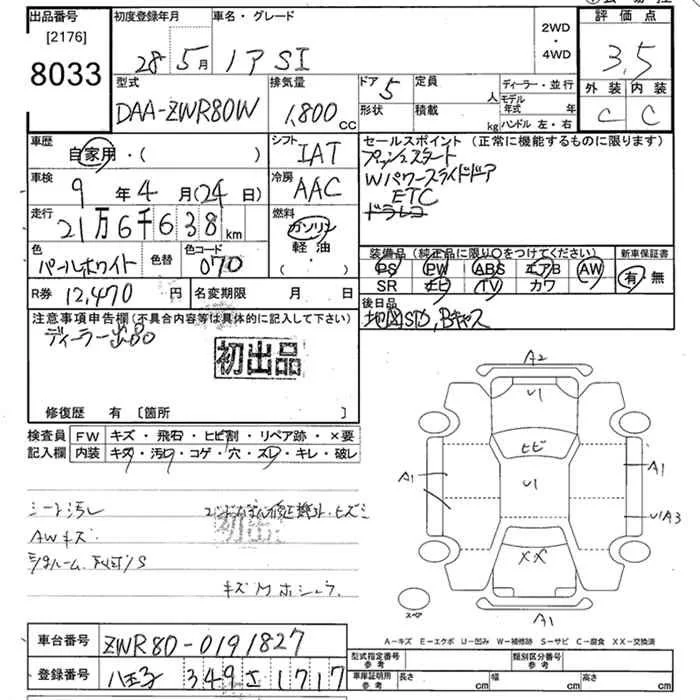 出品番号
[2176]
8033
初度登録年月
28年5月
車名・グレード
ノア SI
2WD
・
4WD
評価点
3.5
外装 内装
C C
型式
DAA-ZWR80W
排気量
1,800cc
ドア 5
形状
定員 人
積載 kg
ディーラー・並行
モデル年式 年
ハンドル 左・右
車歴
自家用・( )
シフト
IAT
車検
9年4月(24日)
冷房
AAC
走行
21万6千638km
燃料
ガソリン
軽油・
( )
色
パールホワイト
色替
色コード
070
R券 12,470円
名変期限 月 日
セールスポイント(正常に機能するものに限ります)
プッシュスタート
Wパワースライドドア
ETC
ドラレコ
装備品(純正品に限り〇をつけてください)
PS PW ABS エアB AW
SR ナビ TV カワ
新車保証書
有 無
後日品
地図SD, Bキャス
注意事項申告欄(不具合内容等は具体的に記入して下さい)
ディーラー出品
初出品
修復歴 有 [箇所 ]
検査員記入欄
FW キズ・飛石・ヒビ割・リペア跡・×要
内装 キズ・汚レ・コゲ・穴・スレ・キレ・破レ
シート汚レ
AWキズ
キズM ホシュウ
初出品
A2
U1
ヒビ
A1
U1
A1
U1A3
XX
A1
スペア
A-キズ E-エクボ U-凹み W-補修跡 S-サビ C-腐食 XX-交換済
車台番号 ZWR80-0191827
登録番号 八王子 349 さ 1717
型式指定番号 参考
類別区分番号 参考
車庫証明用 参考 長さ cm 幅 cm 高さ cm